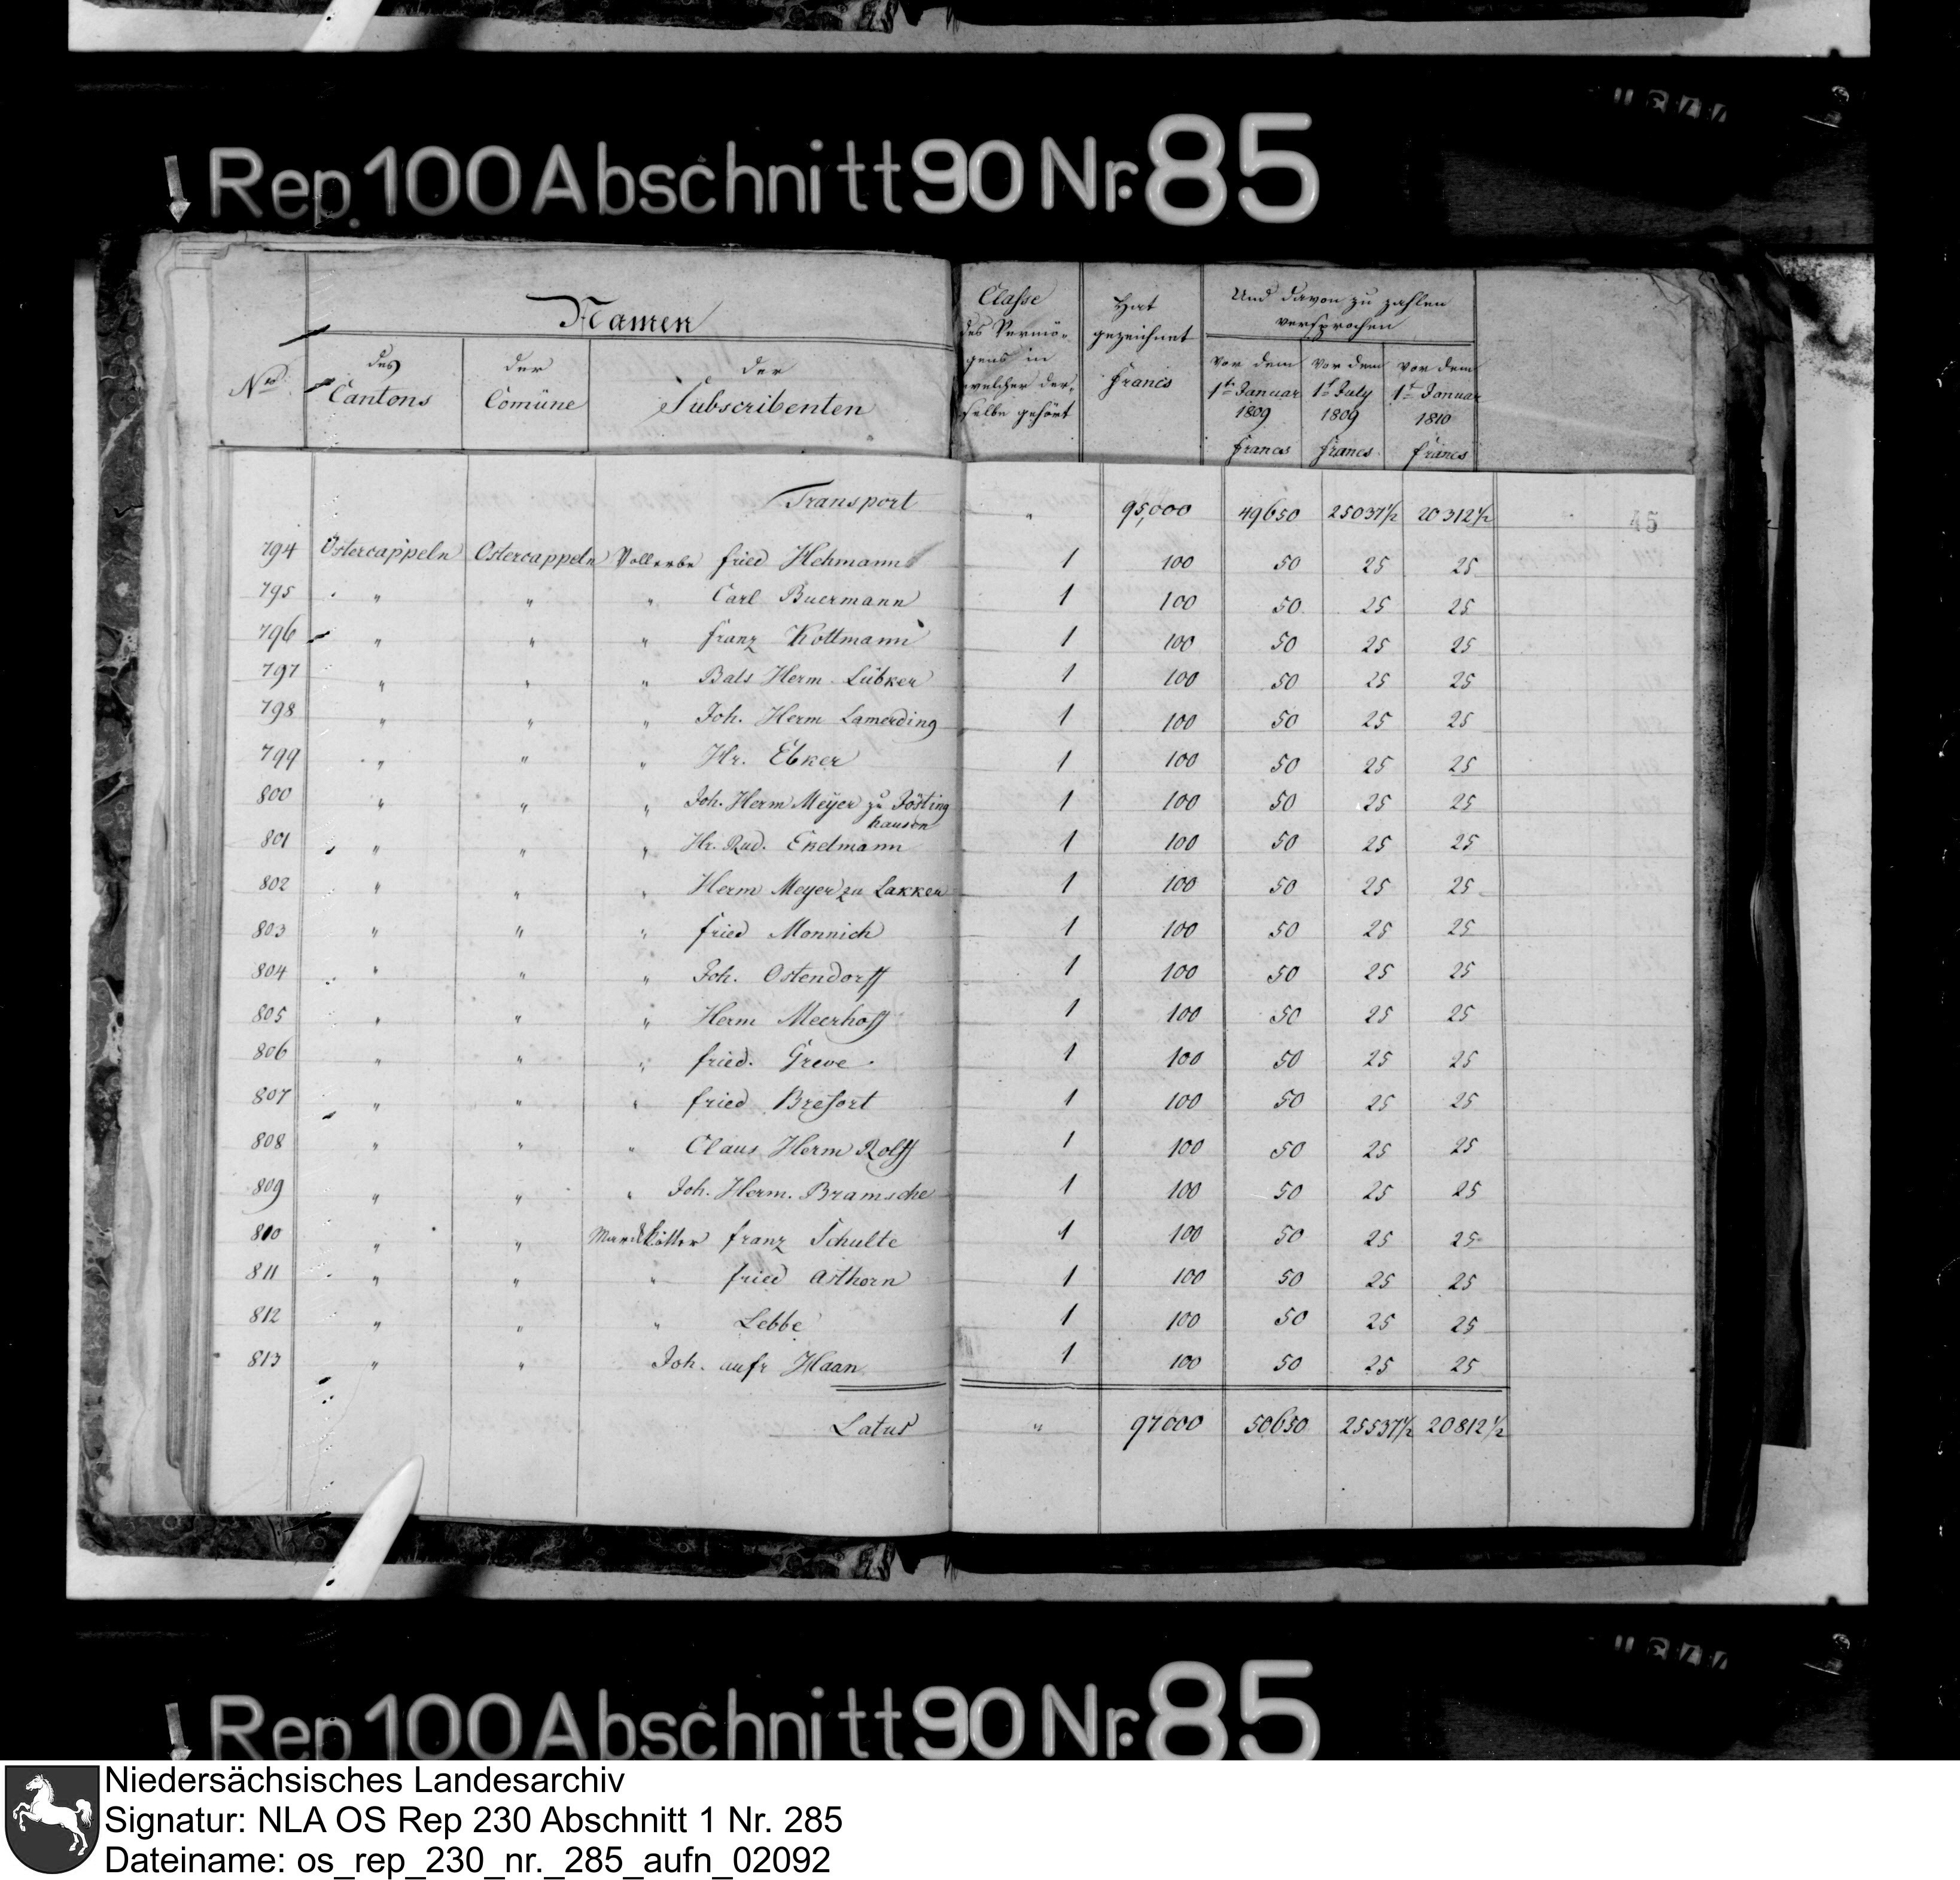 Rep. 100 Abschnitt 90 Nr. 85
Namen
No.
des Cantons
der Comüne
der Subscribenten
Classe des Vermögens in welcher derselbe gehört
Hat gezeichnet Francs
Und davon zu zahlen versprochen
vor dem 1ten Januar 1809 Francs
vor dem 1t July 1809 Francs
vor dem 1t Januar 1810 francs
45
Transport " 95,000 49650 25037½ 20312½
794 Ostercappeln Ostercappeln Vollerbe fried Hehmann 1 100 50 25 25
795 " " " Carl Buermann 1 100 50 25 25
796 " " " franz Kottmann 1 100 50 25 25
797 " " " Bals Herm Lübker 1 100 50 25 25
798 " " " Joh. Herm Lamerding 1 100 50 25 25
799 " " " Hr. Ebker 1 100 50 25 25
800 " " " Joh. Herm Meÿer zu Jösting 1 100 50 25 25
hausen
801 " " " Hr. Rud. Enelmann 1 100 50 25 25
802 " " " Herm Meyer zu Lakken 1 100 50 25 25
803 " " " fried Monnich 1 100 50 25 25
804 " " " Joh. Ostendorff 1 100 50 25 25
805 " " " Herm Meerhoff 1 100 50 25 25
806 " " " fried. Greve 1 100 50 25 25
807 " " " fried Bresort 1 100 50 25 25
808 " " " Claus Herm Rolff 1 100 50 25 25
809 " " " Joh. Herm. Bramsche 1 100 50 25 25
810 " " Marckkötter franz Schulte 1 100 50 25 25
811 " " " fried Asthorn 1 100 50 25 25
812 " " " Lebbe 1 100 50 25 25
813 " " Joh. aufr Haan 1 100 50 25 25
Latus " 97000 50650 25537½ 20812½
Rep. 100 Abschnitt 90 Nr. 85
Niedersächsisches Landesarchiv
Signatur: NLA OS Rep 230 Abschnitt 1 Nr. 285
Dateiname: os_rep_230_nr._285_aufn_02092